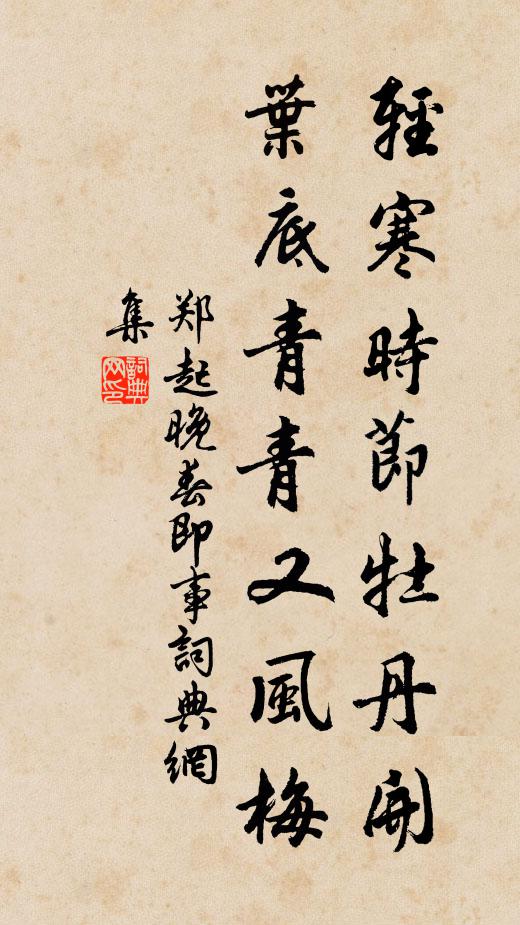 輕寒時節牡丹開
葉底青青又風梅
郑起晚春即事詞典網
集
詞典网印